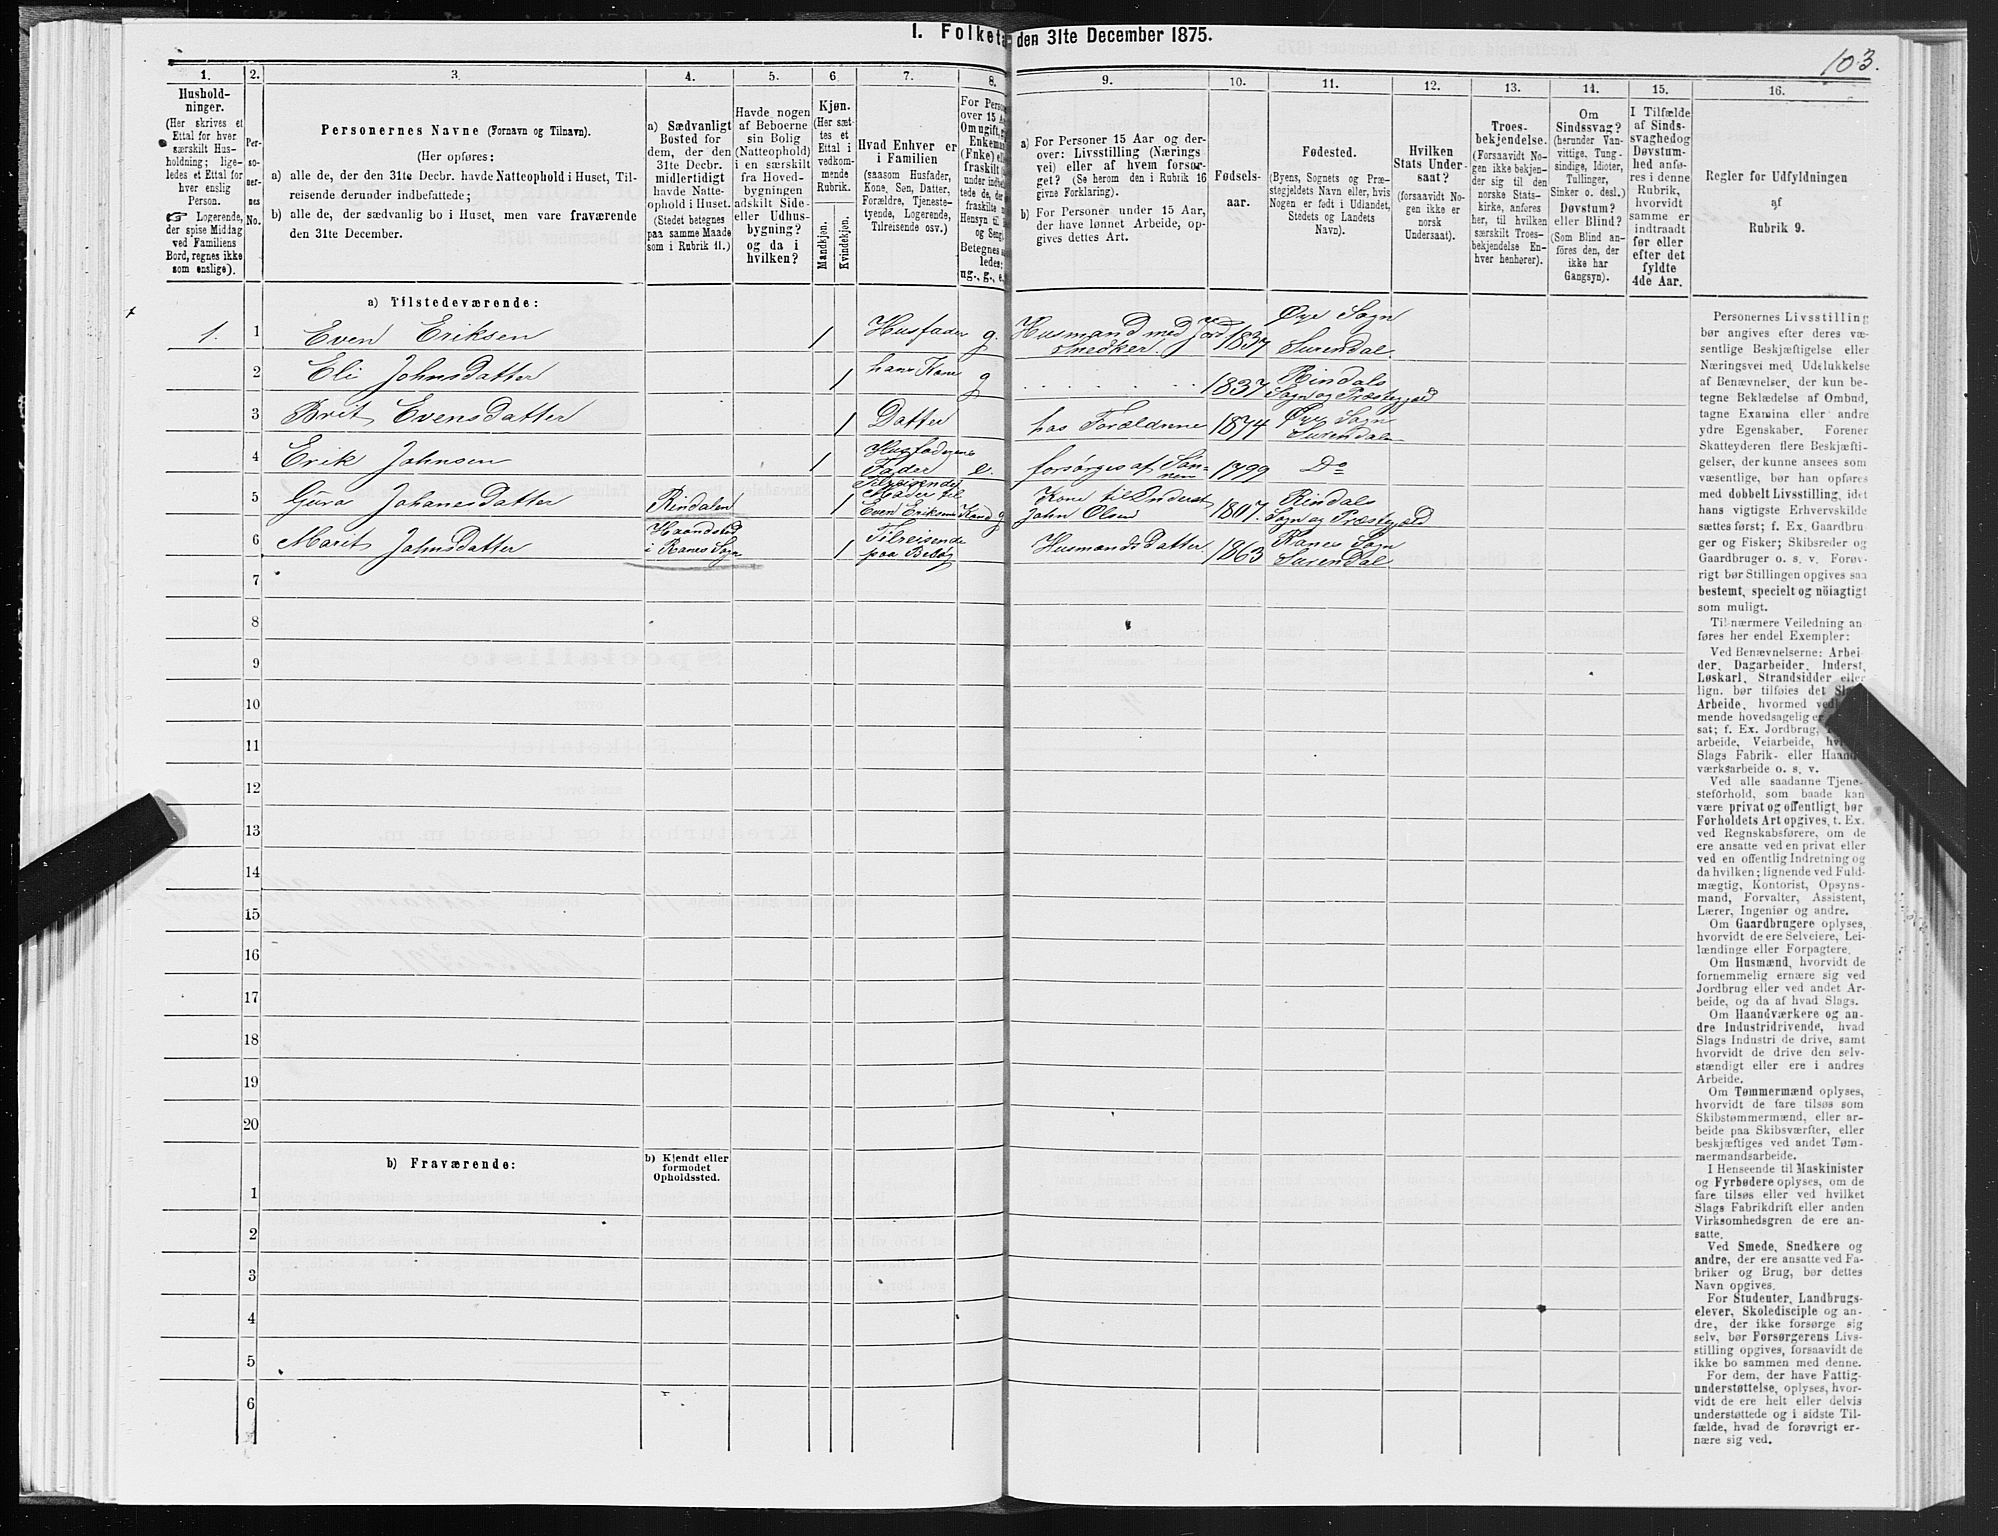 I. Folketa
den 31te December 1875.
103.
1.
2.
3.
4.
5.
6.
7.
8.
9.
10.
11.
12.
13.
14.
15.
16.
Hushold-
ninger.
(Her skrives et
Ettal for hver
særskilt Hus-
holdning; lige-
ledes et Ettal for
hver enslig
Person.
☞ Logerende,
der spise Middag
ved Familiens
Bord, regnes ikke
som enslige).
Per-
so-
ner-
nes
No.
Personernes Navne (Fornavn og Tilnavn).
(Her opføres:
a) alle de, der den 31te Decbr. havde Natteophold i Huset, Til-
reisende derunder indbefattede;
b) alle de, der sædvanlig bo i Huset, men vare fraværende
den 31te December.
a) Sædvanligt
Bosted for
dem, der den
31te Decbr.
midlertidigt
havde Natte-
ophold i Huset.
(Stedet betegnes
paa samme Maade
som i Rubrik 11.)
Havde nogen
af Beboerne
sin Bolig
(Natteophold)
i en særskilt
fra Hoved-
bygningen
adskilt Side-
eller Udhus-
bygning?
og da i
hvilken?
Kjøn.
(Her sæt-
tes et
Ettal i
vedkom-
mende
Rubrik.
Mandkjøn.
Kvindekjøn.
Hvad Enhver er
i Familien
(saasom Husfader,
Kone, Søn, Datter,
Forældre, Tjeneste-
tyende, Logerende,
Tilreisende osv.)
For Perso
over 15 Aa
Om ugift, g
Enkeman
(Fnke) elle
fraskilt
under indbe
tede de, der
fraskilte
Hensyn til
og Seng).
Betegnes s
ledes:
ug., g., e.
a) For Personer 15 Aar og der-
over: Livsstilling (Nærings
vei) eller af hvem forsør-
get? (Se herom den i Rubrik 16
givne Forklaring).
b) For Personer under 15 Aar,
der have lønnet Arbeide, op-
gives dettes Art.
Fødsels-
aar.
Fødested.
(Byens, Sognets og Præ-
stegjeldets Navn eller, hvis
Nogen er født i Udlandet,
Stedets og Landets
Navn).
Hvilken
Stats Under-
saat?
(forsaavidt No-
gen ikke er
norsk
Undersaat).
Troes-
bekjendelse.
(Forsaavidt No-
gen ikke bekjen-
der sig til den
norske Stats-
kirke, anføres
her, til hvilken
særskilt Troes-
bekjendelse En-
hver henhører).
Om
Sindssvag?
(herunder Van-
vittige, Tung-
sindige, Idioter,
Tullinger,
Sinker o. desl.)
Døvstum?
eller Blind?
(Som Blind an-
føres den, der
ikke har
Gangsyn).
I Tilfælde
af Sinds-
svaghed og
Døvstum-
hed anfø-
res i denne
Rubrik,
hvorvidt
samme er
indtraadt
før eller
efter det
fyldte
4de Aar.
Regler for Udfyldningen
af
Rubrik 9.
a) Tilstedeværende:
1. 1 Even Eriksen 1 Husfader g. Husmand med Jord Snedker. 1837 Øye Sogn Surendal
2 Eli Johnsdatter 1 hans Kone g 1837 Rindals Sogn og Præstegjeld
3 Brit Evensdatter 1 Datter hos Forældrene 1874 Øye Sogn Surendalen
4 Erik Johnsen 1 Husfaderens Fader e. forsørges af Sønnen 1799 Do
5 Guro Johanesdatter Rindalen 1 Tilreisende Moder til Even Eriksens Kone g Kone til Inderst John Olsen 1807. Rindals Sogn og Præstegjeld
6 Marit Johnsdatter Haandstad i Ranes Sogn 1 Tilreisende paa Besøg Husmands Datter 1863 Ranes Sogn Surendal
7
8
9
10
11
12
13
14
15
16
17
18
19
20
b) Fraværende:
b) Kjendt eller
formodet
Opholdssted.
1
2
3
4
5
6
Personernes Livsstilling
bør angives efter deres væ-
sentlige Beskjæftigelse eller
Næringsvei med Udelukkelse
af Benævnelser, der kun be-
tegne Beklædelse af Ombud,
tagne Examina eller andre
ydre Egenskaber. Forener
Skatteyderen flere Beskjæfti-
gelser, der kunne ansees som
væsentlige, bør han opføres
med dobbelt Livsstilling, idet
hans vigtigste Erhvervskilde
sættes først; f. Ex. Gaardbru-
ger og Fisker; Skibsreder og
Gaardbruger o. s. v. Forøv-
rigt bør Stillingen opgives saa
bestemt, specielt og nöiagtigt
som muligt.
Til nærmere Veiledning an-
føres her endel Exempler:
Ved Benævnelserne: Arbei-
der, Dagarbeider, Inderst,
Løskarl, Strandsidder eller
lign. bør tilføies det Slags
Arbeide, hvormed vedkom-
mende hovedsagelig er
sat; f. Ex. Jordbrug,
arbeide, Veiarbeide, hvilket
Slags Fabrik- eller Haand-
værksarbeide o. s. v.
Ved alle saadanne Tjene-
steforhold, som baade kan
være privat og offentligt, bør
Forholdets Art opgives, t. Ex.
ved Regnskabsførere, om de
ere ansatte ved en privat eller
ved en offentlig Indretning og
da hvilken; lignende ved Fuld-
mægtig, Kontorist, Opsyns-
mand, Forvalter, Assistent,
Lærer, Ingeniør og andre.
Om Gaardbrugere oplyses,
hvorvidt de ere Selveiere, Lei-
lændinge eller Forpagtere.
Om Husmænd, hvorvidt de
fornemmelig ernære sig ved
Jordbrug eller ved andet Ar-
beide, og da af hvad Slags.
Om Haandværkere og an-
dre Industridrivende, hvad
Slags Industri de drive, samt
hvorvidt de drive den selv-
stændigt eller ere i andres
Arbeide.
Om Tømmermænd oplyses,
hvorvidt de fare tilsøs som
Skibstømmermænd, eller ar-
beide paa Skibsværfter, eller
beskjæftiges ved andet Tøm-
mermandsarbeide.
I Henseende til Maskinister
og Fyrbødere oplyses, om de
fare tilsøs eller ved hvilket
Slags Fabrikdrift eller anden
Virksomhedsgren de ere an-
satte.
Ved Smede, Snedkere og
andre, der ere ansatte ved Fa-
briker og Brug, bør dettes
Navn opgives.
For Studenter, Landbrugs-
elever, Skoledisciple og an-
dre, der ikke forsørge sig
selv, bør Forsørgerens Livs-
stilling opgives, forsaavidt de
ikke bo sammen med denne.
For dem, der have Fattig-
understøttelse, oplyses, hvor-
vidt de ere helt eller delvis
understøttede og i sidste Til-
fælde, hvad de forøvrigt er-
nære sig ved.